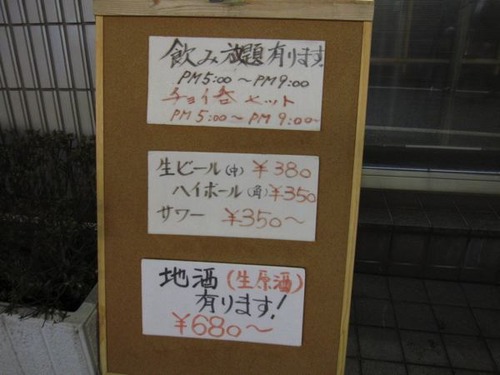 飲み放題有ります
PM5:00〜PM9:00
チョイ呑セット
PM5:00〜PM9:00〜
生ビール(中) ¥380
ハイボール(角) ¥350
サワー ¥350〜
地酒(生原酒)
有ります!
¥680〜